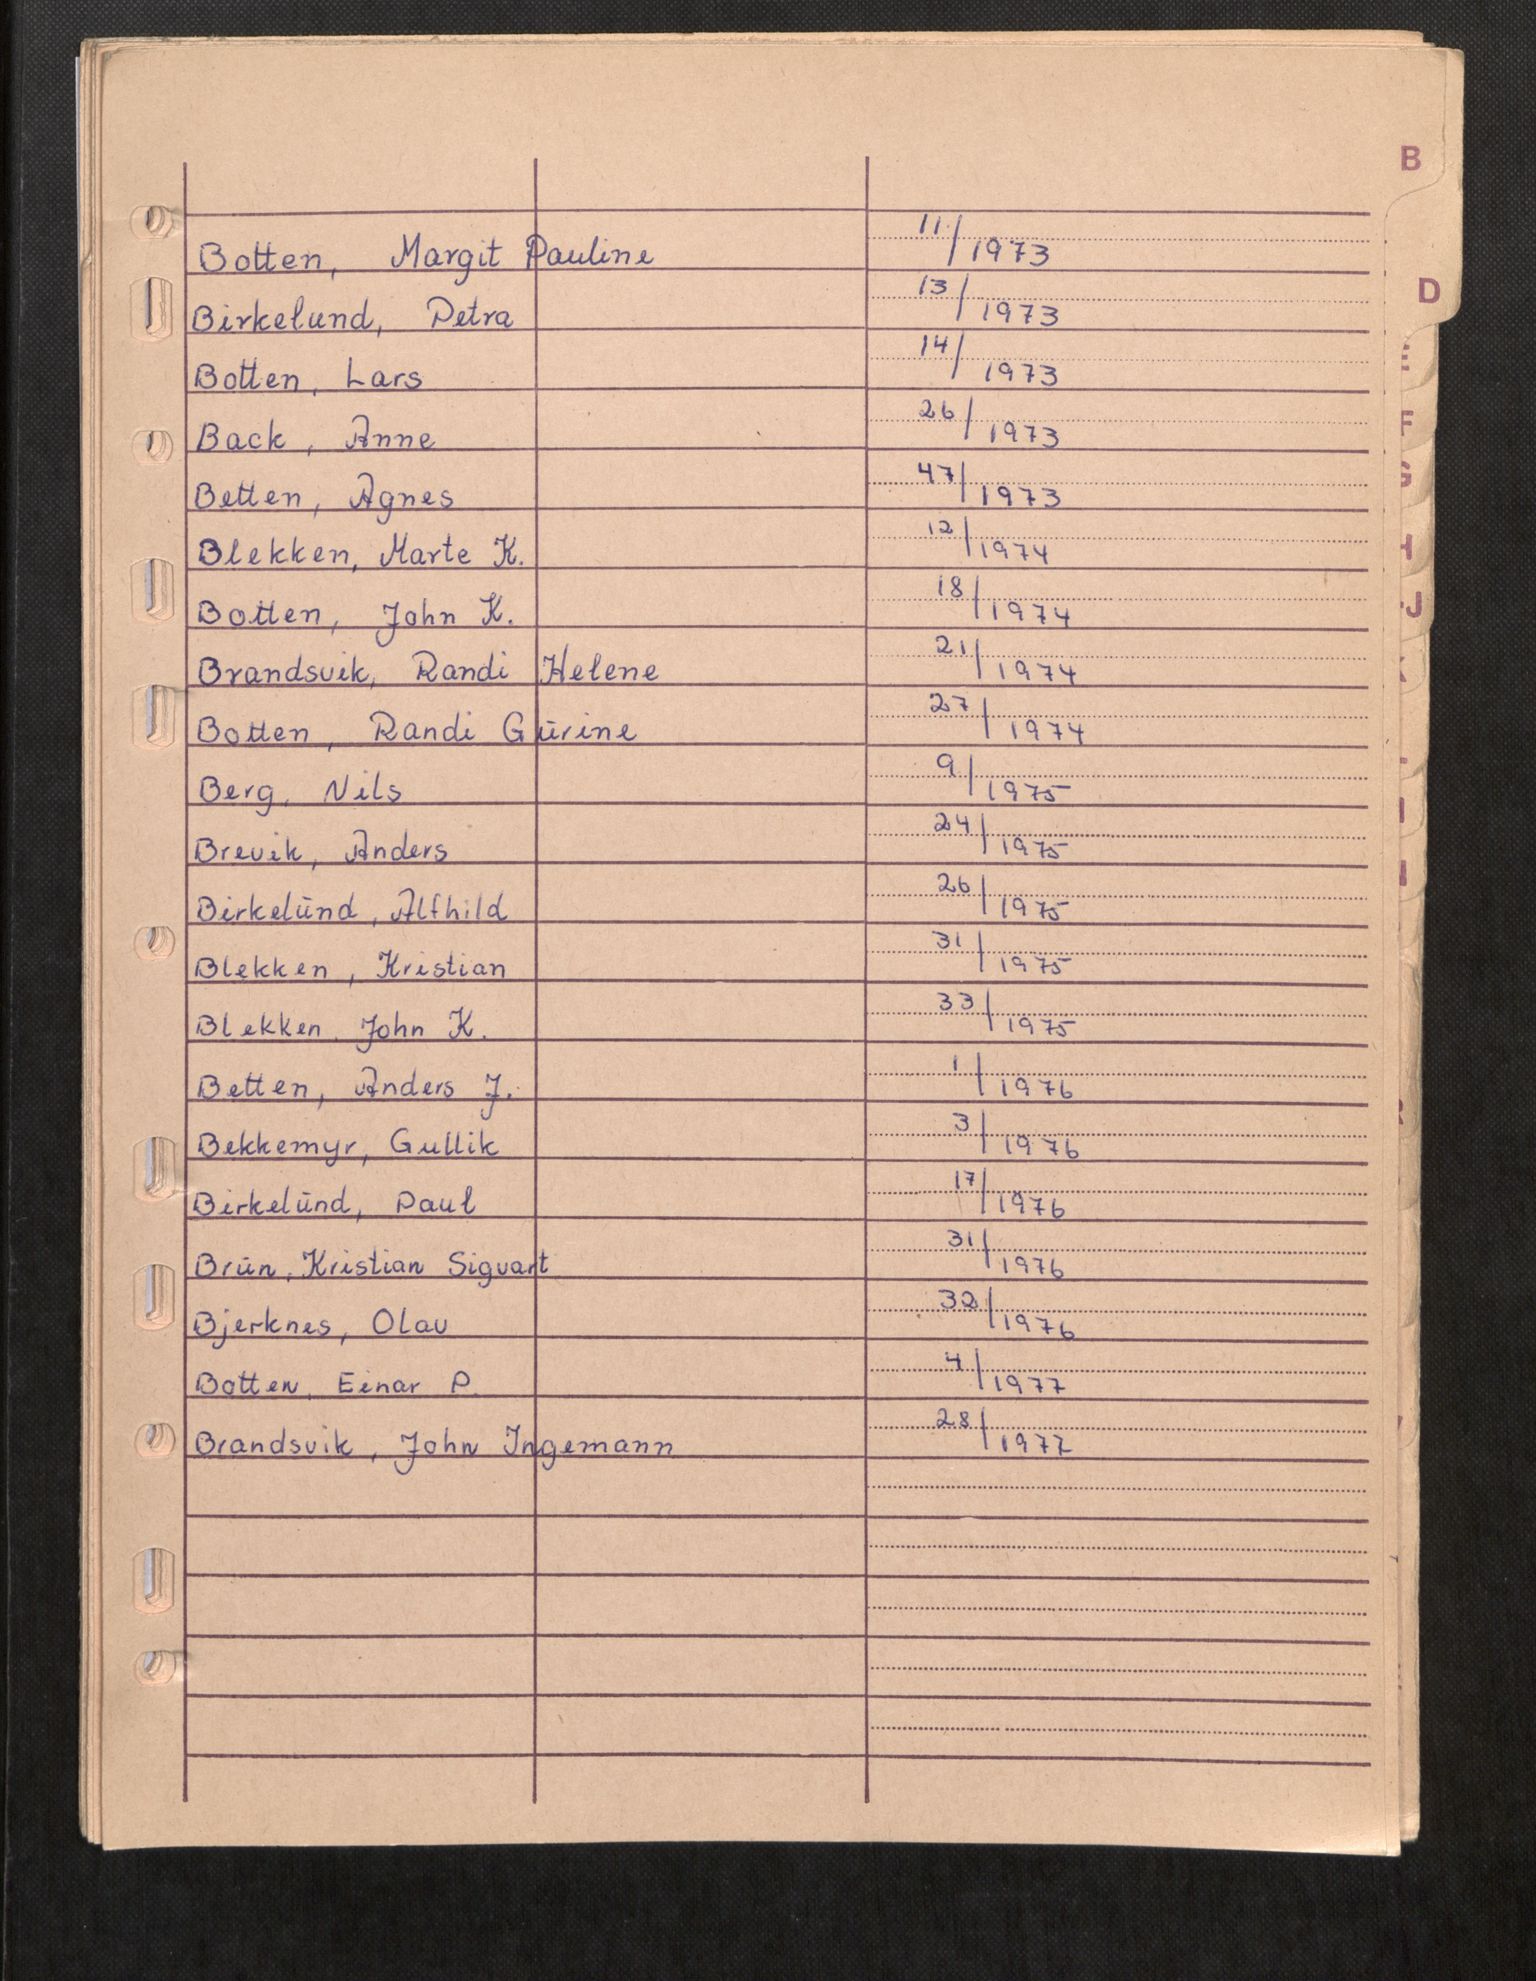 B
Botten, Margit Pauline 11/1973
D
Birkelund, Petra 13/1973
Botten, Lars 14/1973
E
Back, Anne 26/1973
F
Betten, Agnes 47/1973
G
Blekken, Marte K. 12/1974
H
Botten, John K. 18/1974
-J
Brandsvik, Randi Helene 21/1974
K
Botten, Randi Gūrine 27/1974
Berg, Nils 9/1975
Brevik, Anders 24/1975
Birkelūnd, Alfhild 26/1975
Blekken, Kristian 31/1975
Blekken, John K. 33/1975
Betten, Anders J. 1/1976
R
Bekkemyr, Gullik 3/1976
Birkelūnd, Paul 17/1976
Brūn, Kristian Siguart 31/1976
Bjerknes, Olav 32/1976
Botten, Einar P. 4/1977
Brandsvik, John Ingemann 28/1977